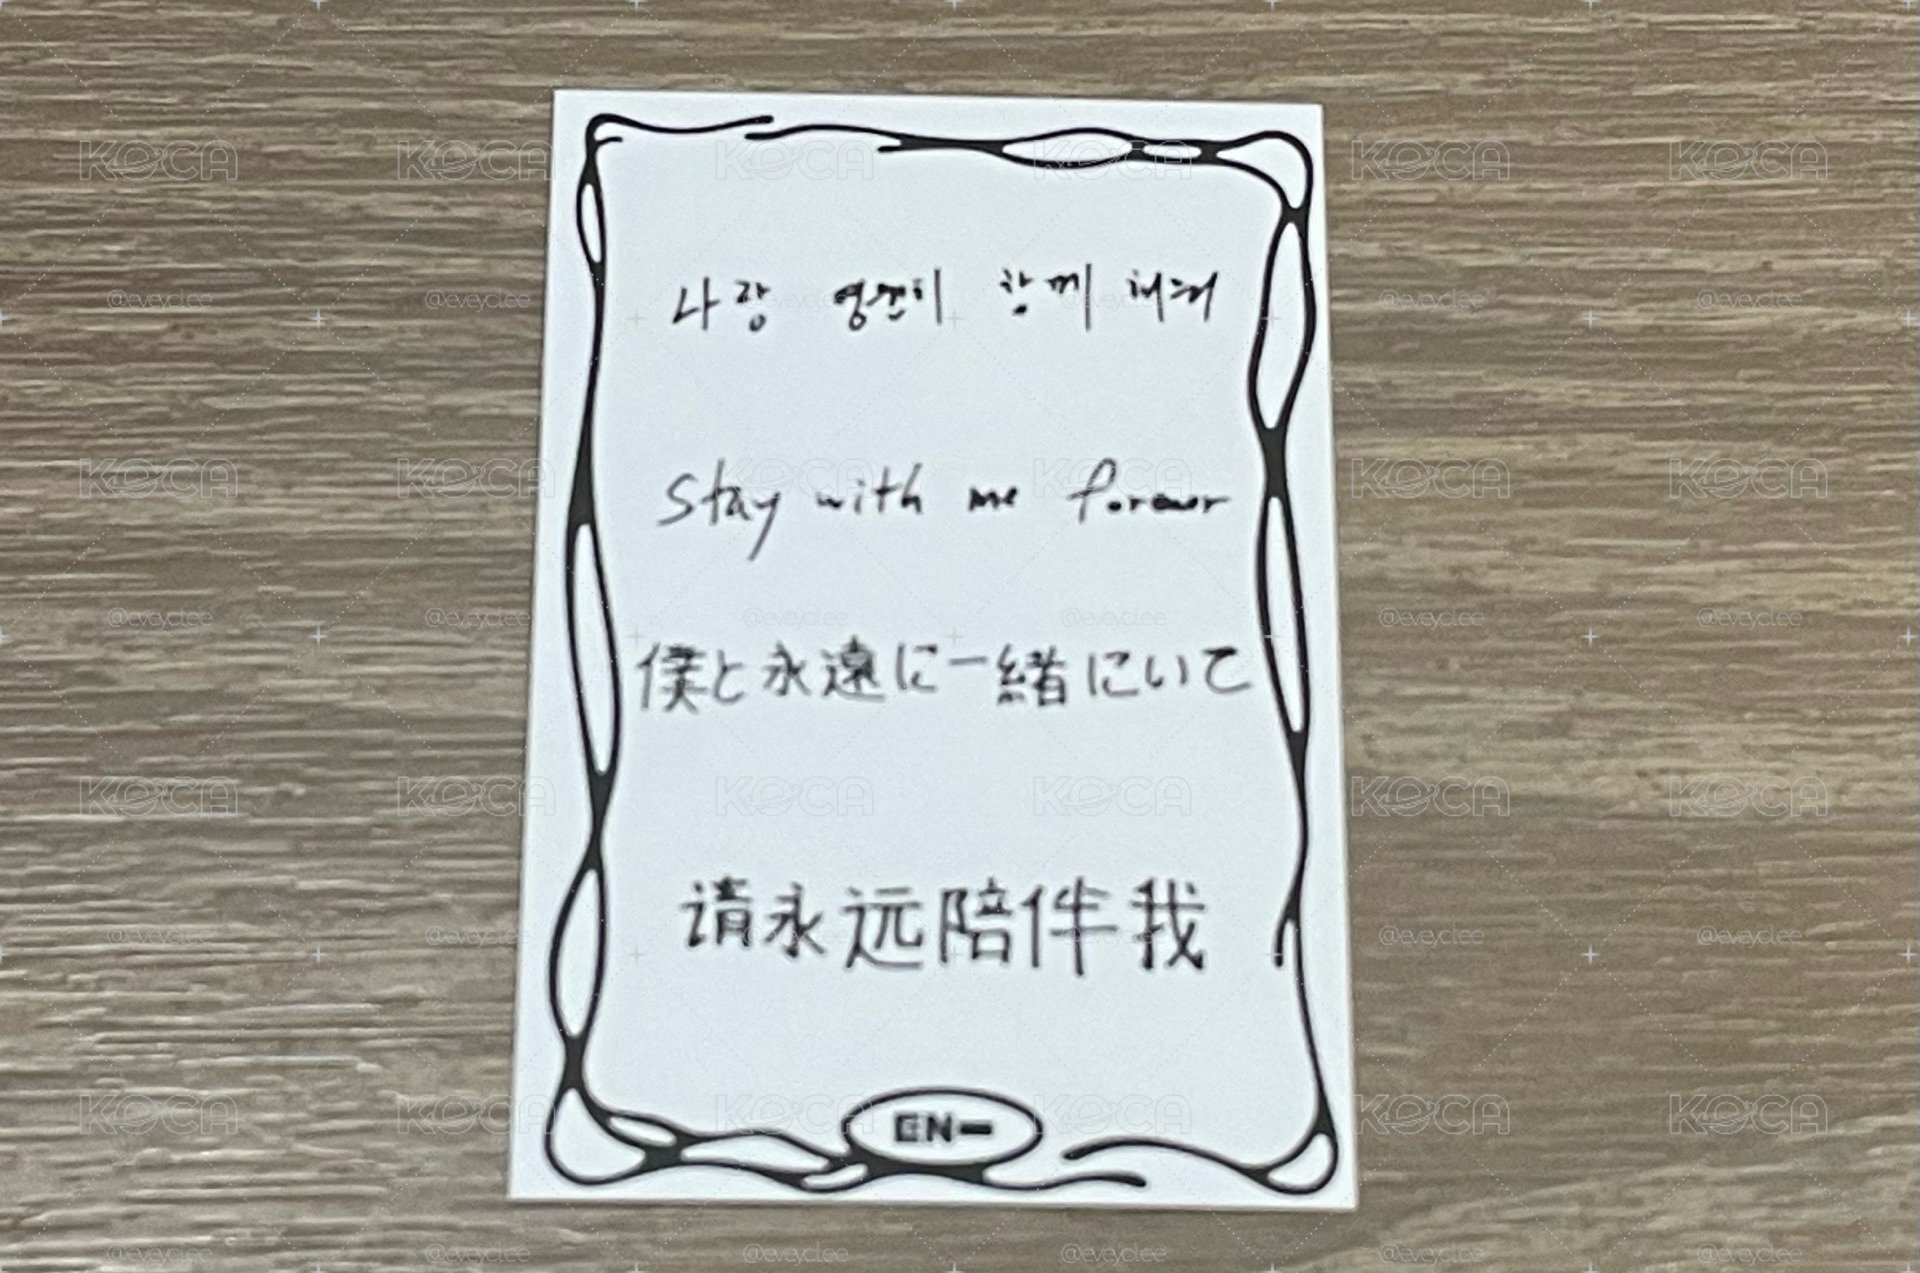 나랑 영원히 함께 해줘
Stay with me forever
僕と永遠に一緒にいて
请永远陪伴我
EN-
KOCA
@eveyclee